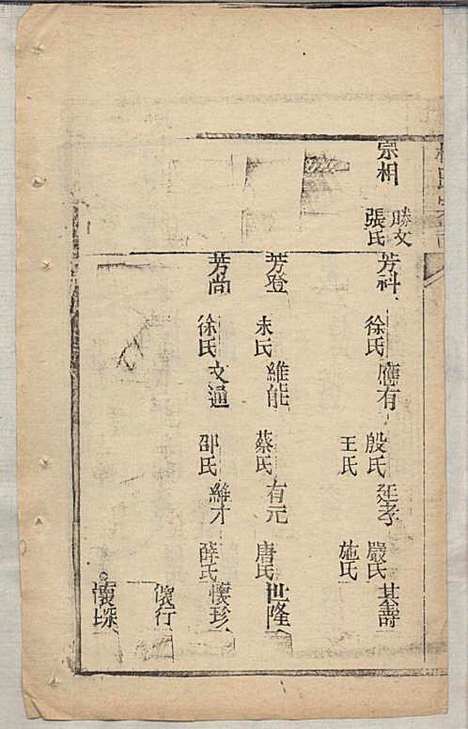 宗相
勝文
張氏
芳科
徐氏
應有
殷氏
王氏
延孝
嚴氏
施氏
其壽
芳登
朱氏
維能
蔡氏
有元
唐氏
世隆
芳尚
徐氏
文通
邵氏
維才
薛氏
懷珍
懷行
懷琛